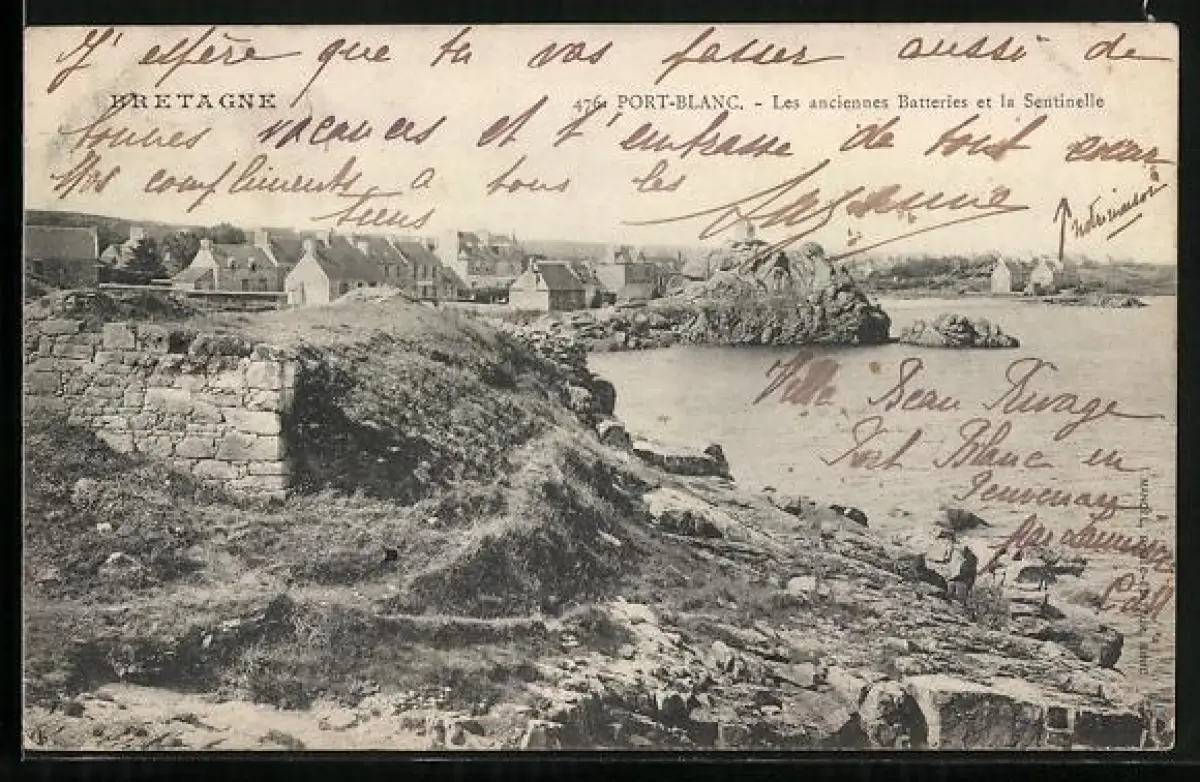 J'espère que tu vas passer aussi de
BRETAGNE
476. PORT-BLANC. - Les anciennes Batteries et la Sentinelle
bonnes vacances et t'embrasse de tout cœur
Mes compliments a tous les
tiens
notre maison
Villa Beau Rivage
Port Blanc en
Penvenan
par Lannion